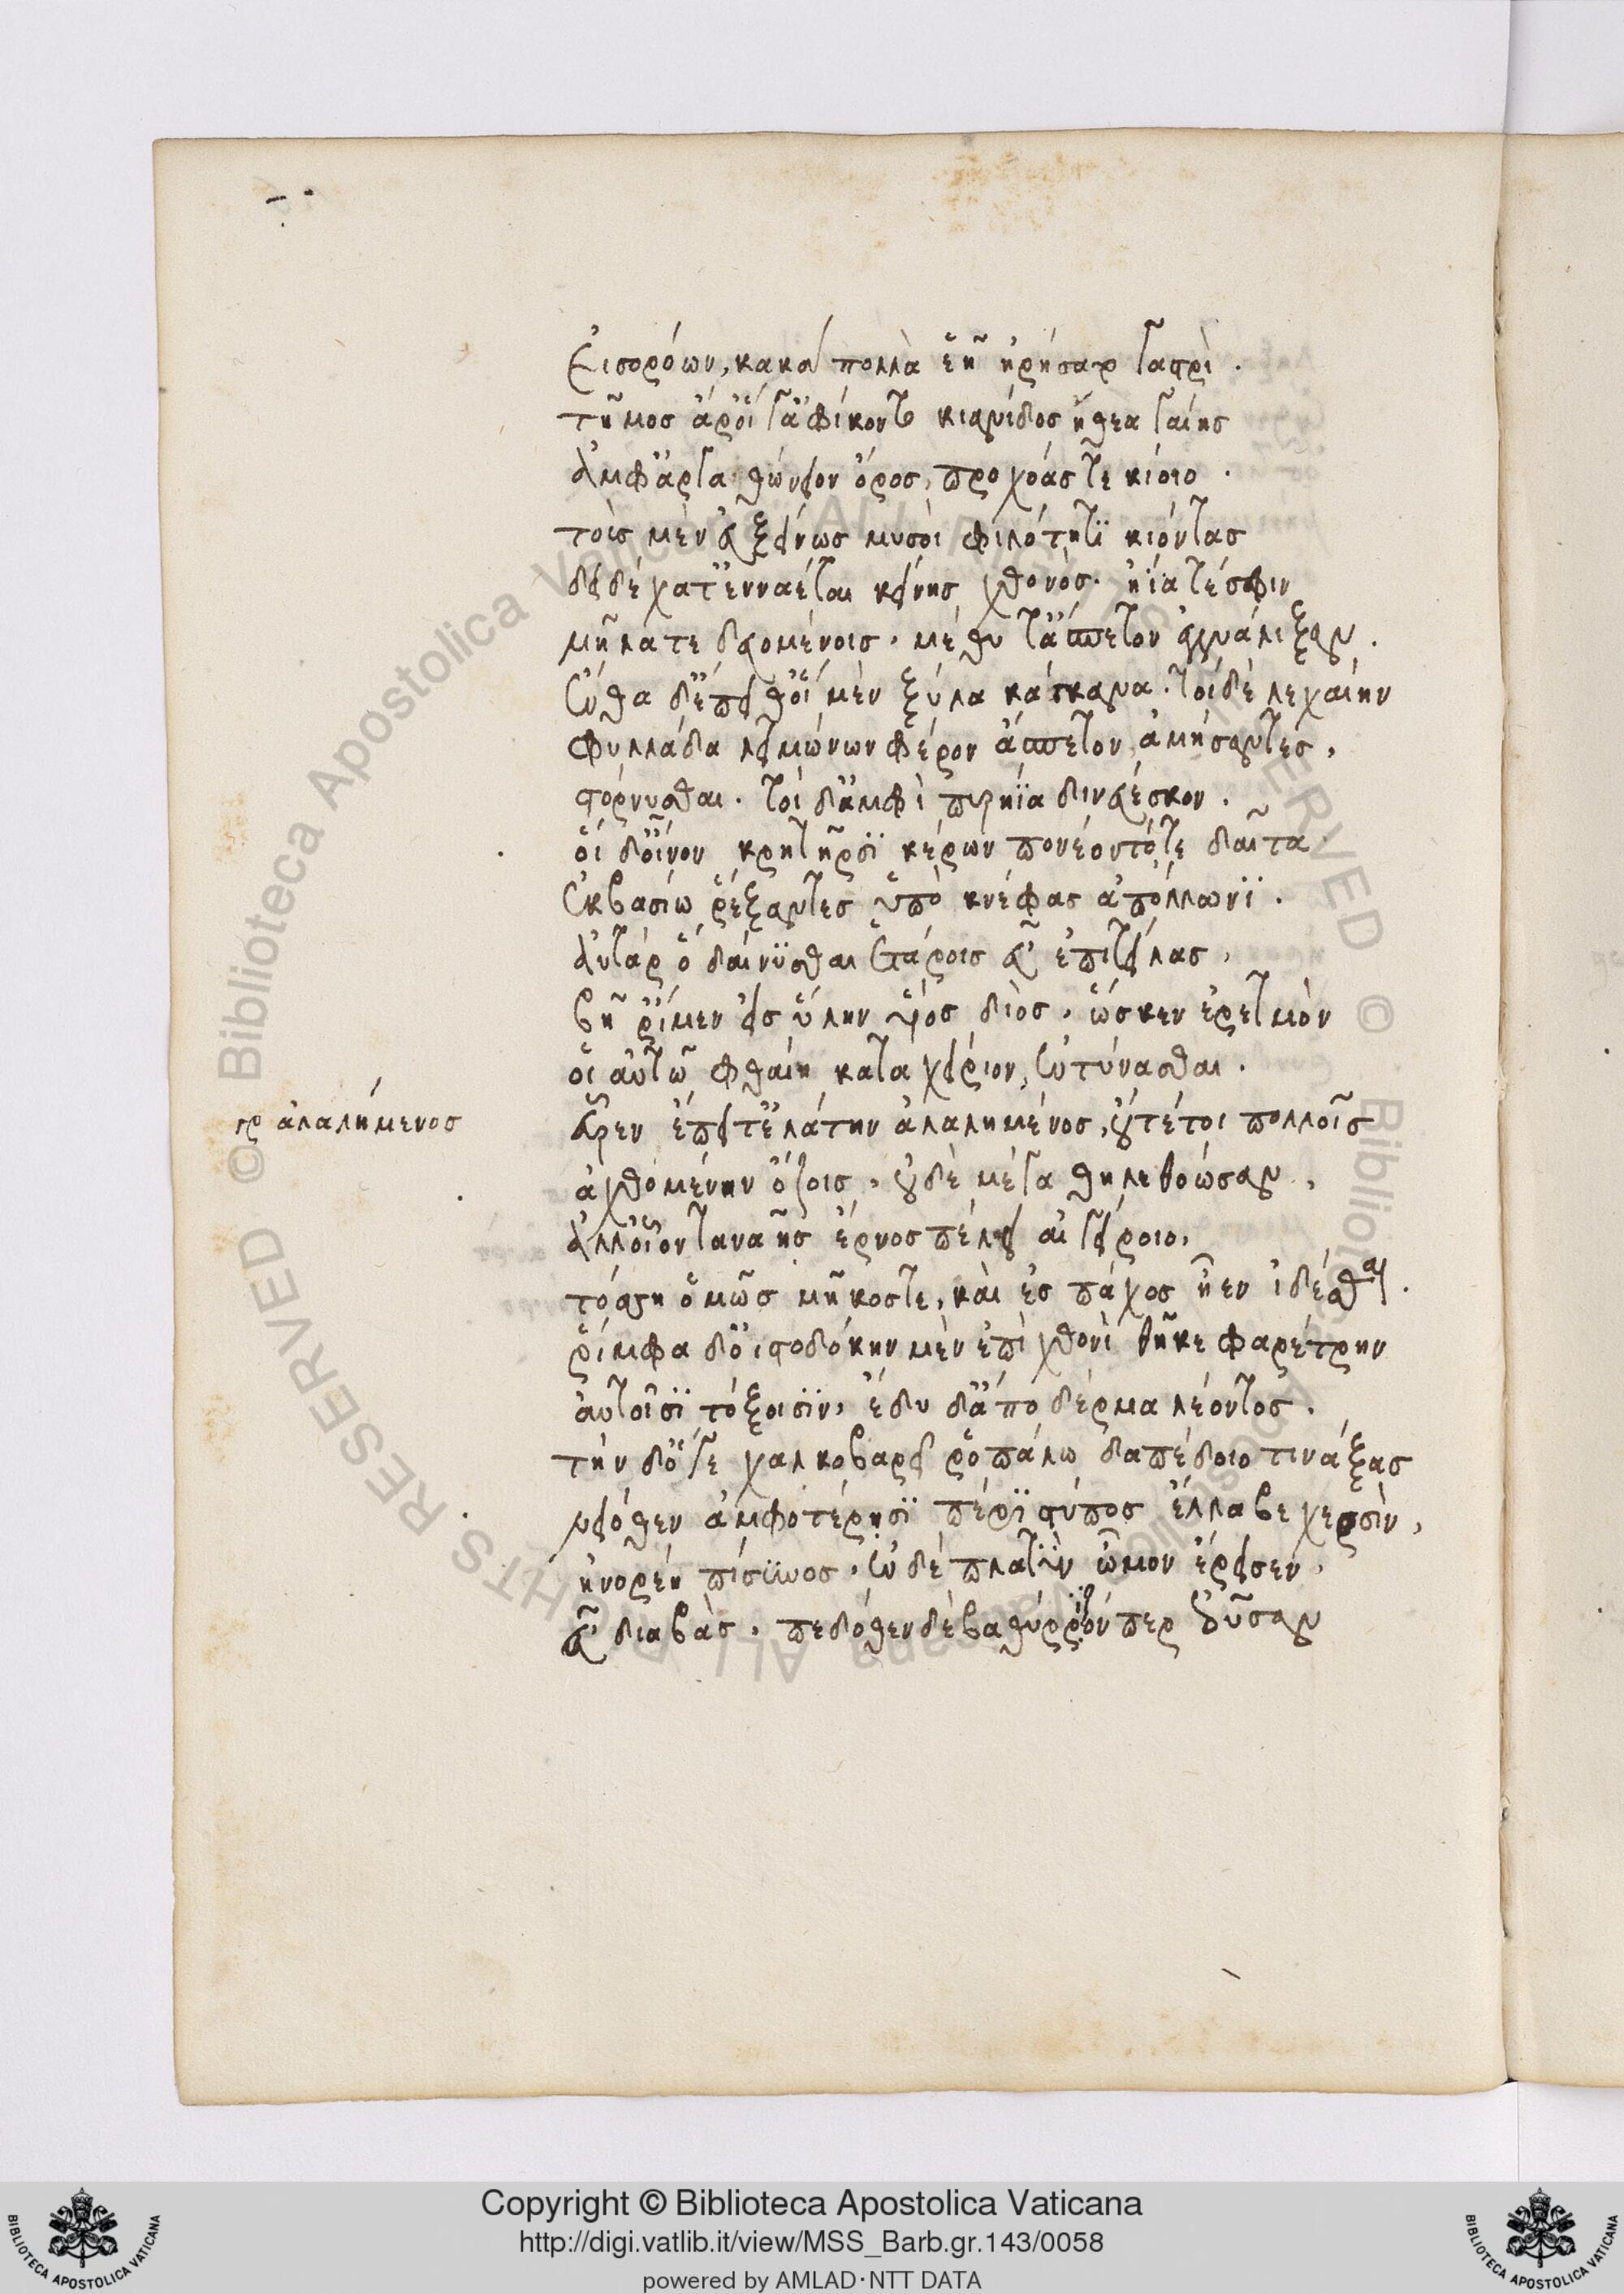 Εἰσορόων, κακὰ πολλὰ ἑῇ ἠρήσατο γαστρί.
τῆμος ἄρ' οἵ γ' ἀφίκοντο κιανίδος ἤθεα γαίης
ἀμφ' ἀργανθώνειον ὄρος, προχοάς τε κίοιο.
τοὺς μὲν ἐϋξείνως μυσοὶ φιλότητι κιόντας
δειδέχατ' ἐνναέται κείνης χθονός. ἤϊά τέ σφιν
μῆλά τε δευομένοις, μέθυ τ' ἄσπετον ἐγγυάλιξαν.
Ἔνθα δ' ἔπειθ' οἱ μὲν ξύλα κάγκανα. τοὶ δὲ λεχαίην
φυλλάδα λειμώνων φέρον ἄσπετον ἀμήσαντες,
στόρνυσθαι. τοὶ δ' ἀμφὶ πυρήϊα δινεύεσκον.
οἱ δ' οἶνον κρητῆρσι κέρων πονέοντό τε δαῖτα.
Ἐκβασίῳ ῥέξαντες ὑπὸ κνέφας ἀπόλλωνι.
Αὐτὰρ ὁ δαίνυσθαι ἑτάροις εὖ ἐπιτείλας,
βῆ ῥ' ἴμεν εἰς ὕλην υἱὸς διός, ὥς κεν ἐρετμὸν
οἷ αὐτῷ φθαίη καταχείριον, ἐντύνασθαι.
γρ ἀλαλήμενος
εὗρεν ἔπειτ' ἐλάτην ἀλαλημένος, οὔτέ τοι πολλοῖς
ἀχθομένην ὄζοις, οὐδὲ μέγα θηλεθοώσαν,
ἀλλ' οἷον ταναῆς ἔρνος πέλει αἰγείροιο,
τόσση ὁμῶς μῆκός τε, καὶ ἐς πάχος ἦεν ἰδέσθαι.
ῥίμφα δ' ὀϊστοδόκην μὲν ἐπὶ χθονὶ θῆκε φαρέτρην
αὐτοῖσι τόξοισιν, ἔδυ δ' ἀπὸ δέρμα λέοντος.
τὴν δ' ὅ γε χαλκοβαρεῖ ῥοπάλῳ δαπέδοιο τινάξας
νειόθεν ἀμφοτέρῃσι περὶ στύπος ἔλλαβε χερσὶν,
ἠνορέῃ πίσυνος. ἐν δὲ πλατὺν ὦμον ἔρεισεν,
εὖ διαβὰς. πεδόθεν δὲ βαθύρριζόν περ ἐοῦσαν
Copyright © Biblioteca Apostolica Vaticana
http://digi.vatlib.it/view/MSS_Barb.gr.143/0058
powered by AMLAD·NTT DATA